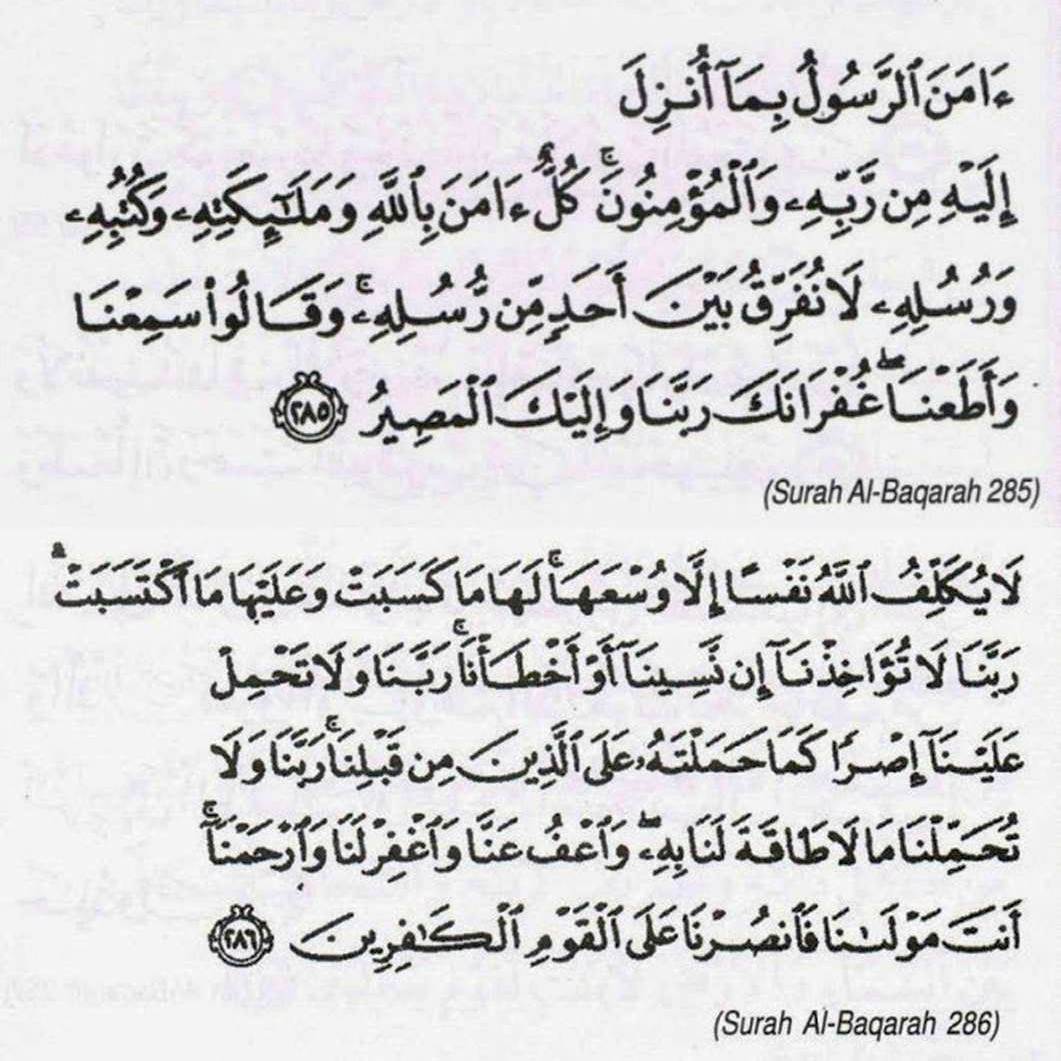 ءَامَنَ ٱلرَّسُولُ بِمَآ أُنزِلَ
إِلَيْهِ مِن رَّبِّهِۦ وَٱلْمُؤْمِنُونَ ۚ كُلٌّ ءَامَنَ بِٱللَّهِ وَمَلَٰٓئِكَتِهِۦ وَكُتُبِهِۦ
وَرُسُلِهِۦ لَا نُفَرِّقُ بَيْنَ أَحَدٍ مِّن رُّسُلِهِۦ ۚ وَقَالُوا۟ سَمِعْنَا
وَأَطَعْنَا ۖ غُفْرَانَكَ رَبَّنَا وَإِلَيْكَ ٱلْمَصِيرُ ٢٨٥
(Surah Al-Baqarah 285)
لَا يُكَلِّفُ ٱللَّهُ نَفْسًا إِلَّا وُسْعَهَا ۚ لَهَا مَا كَسَبَتْ وَعَلَيْهَا مَا ٱكْتَسَبَتْ ۗ
رَبَّنَا لَا تُؤَاخِذْنَآ إِن نَّسِينَآ أَوْ أَخْطَأْنَا ۚ رَبَّنَا وَلَا تَحْمِلْ
عَلَيْنَآ إِصْرًا كَمَا حَمَلْتَهُۥ عَلَى ٱلَّذِينَ مِن قَبْلِنَا ۚ رَبَّنَا وَلَا
تُحَمِّلْنَا مَا لَا طَاقَةَ لَنَا بِهِۦ ۖ وَٱعْفُ عَنَّا وَٱغْفِرْ لَنَا وَٱرْحَمْنَآ ۚ
أَنتَ مَوْلَىٰنَا فَٱنصُرْنَا عَلَى ٱلْقَوْمِ ٱلْكَٰفِرِينَ ٢٨٦
(Surah Al-Baqarah 286)